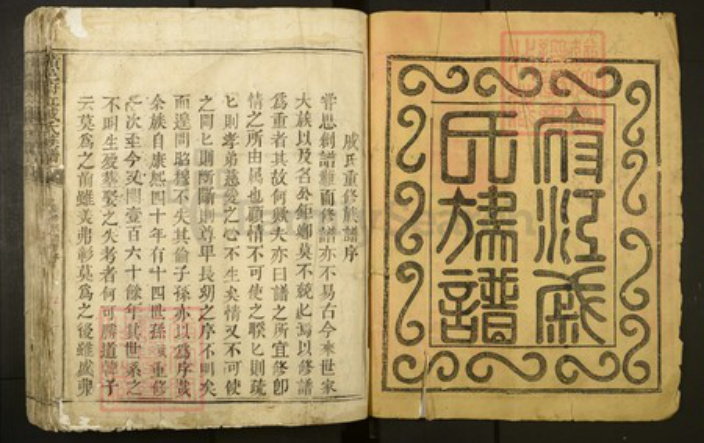 府江戚
氏族譜
戚氏重修族譜序
嘗思創譜難而修譜亦不易古今來世家
大族以及名公鉅鄉莫不兢兢焉以修譜
為重者其故何歟夫亦曰譜之所宜修卽
情之所由属也顧情不可使之睽睽則疏
七則孝弟慈愛之心不生矣情又不可使
之間間則斷斷則尊卑長幼之序不明矣
而遑問昭穆不失其倫子孫亦以為序哉
余族自康熙四十年有十四世孫 重修
之次至今又閱壹百六十餘年其世系之
不明生發基娶之失考者何可勝道韓子
云莫為之前雖美弗彰莫為之後雖盛弗